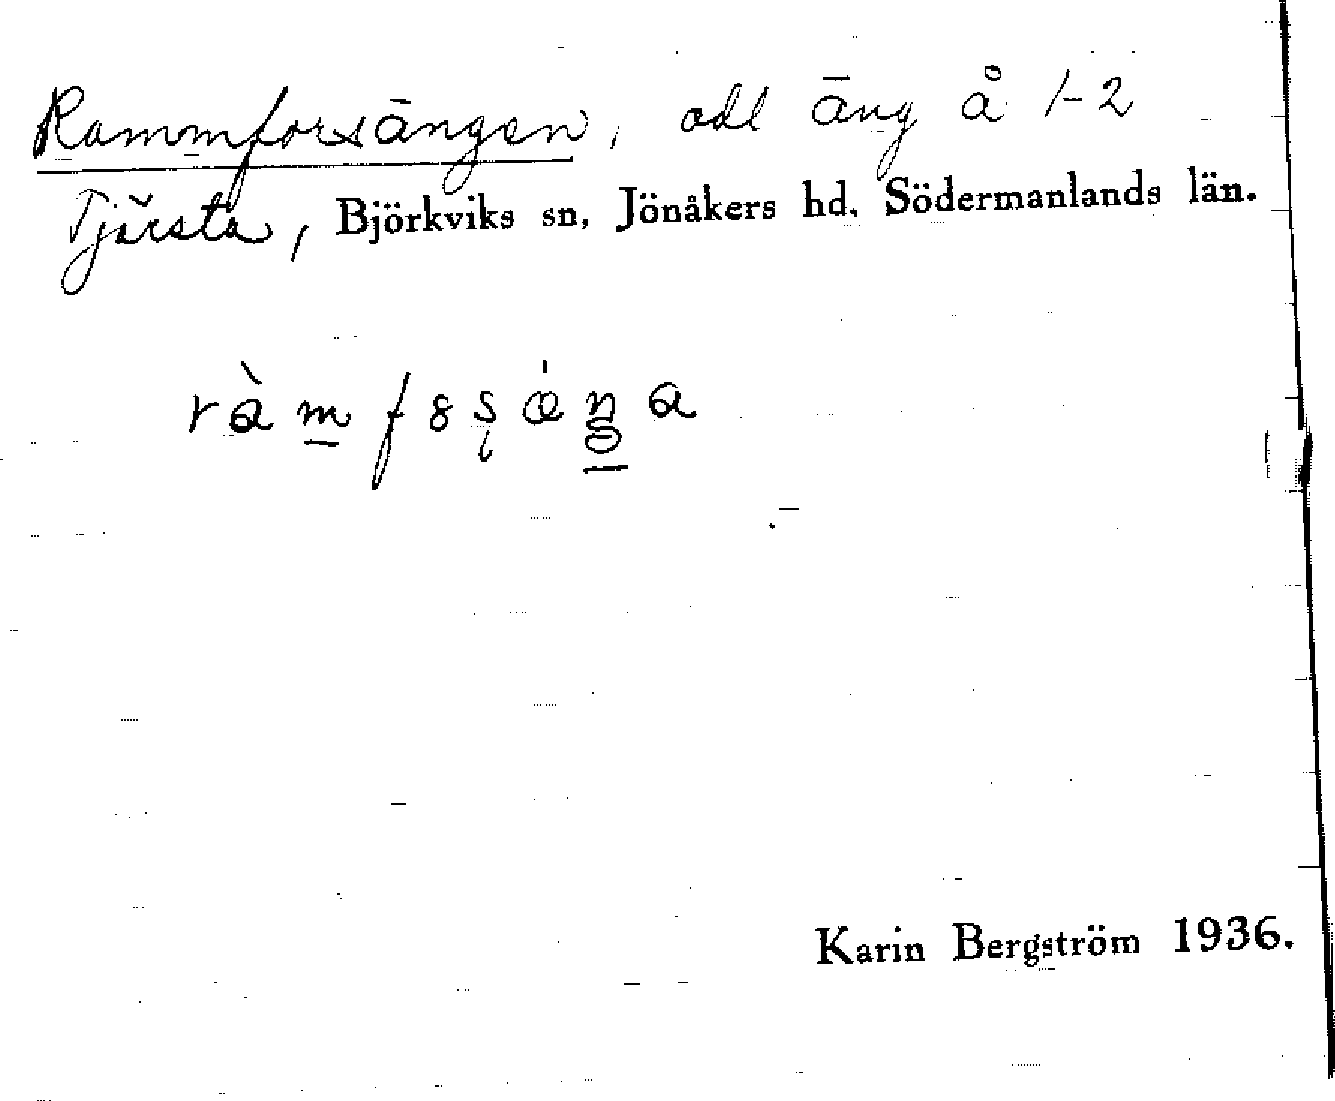 Rammforsängen, odl äng å 1-2
Tjärsta, Björkviks sn, Jönåkers hd. Södermanlands län.
ràmf8ṣæŋa
Karin Bergström 1936.